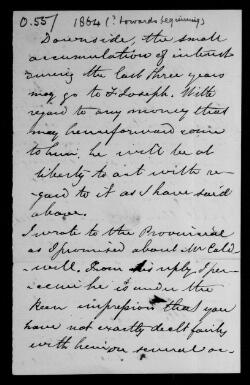 O.55/ 1864 (? towards beginning)
Downside, the small
accumulation of interest
during the last three years
may go to F. Joseph. With
regard to any money that
may henceforward come
to him, he will be at
liberty to act with re-
gard to it as I have said
above.
I wrote to the Provincial
as I promised about Mr Cald-
well. From his reply I per-
ceive he is under the
keen impression that you
have not exactly dealt fairly
with him on several oc-